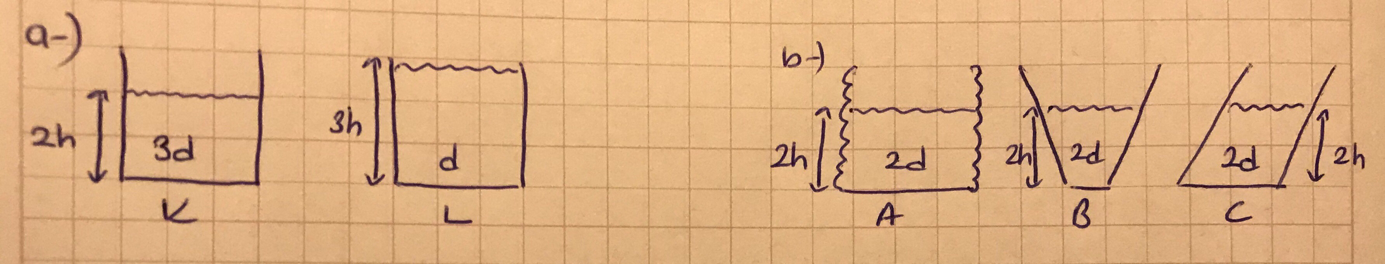 a-)
2h 3d
K
3h d
L
b-)
2h 2d
A
2h 2d
B
2d 2h
C